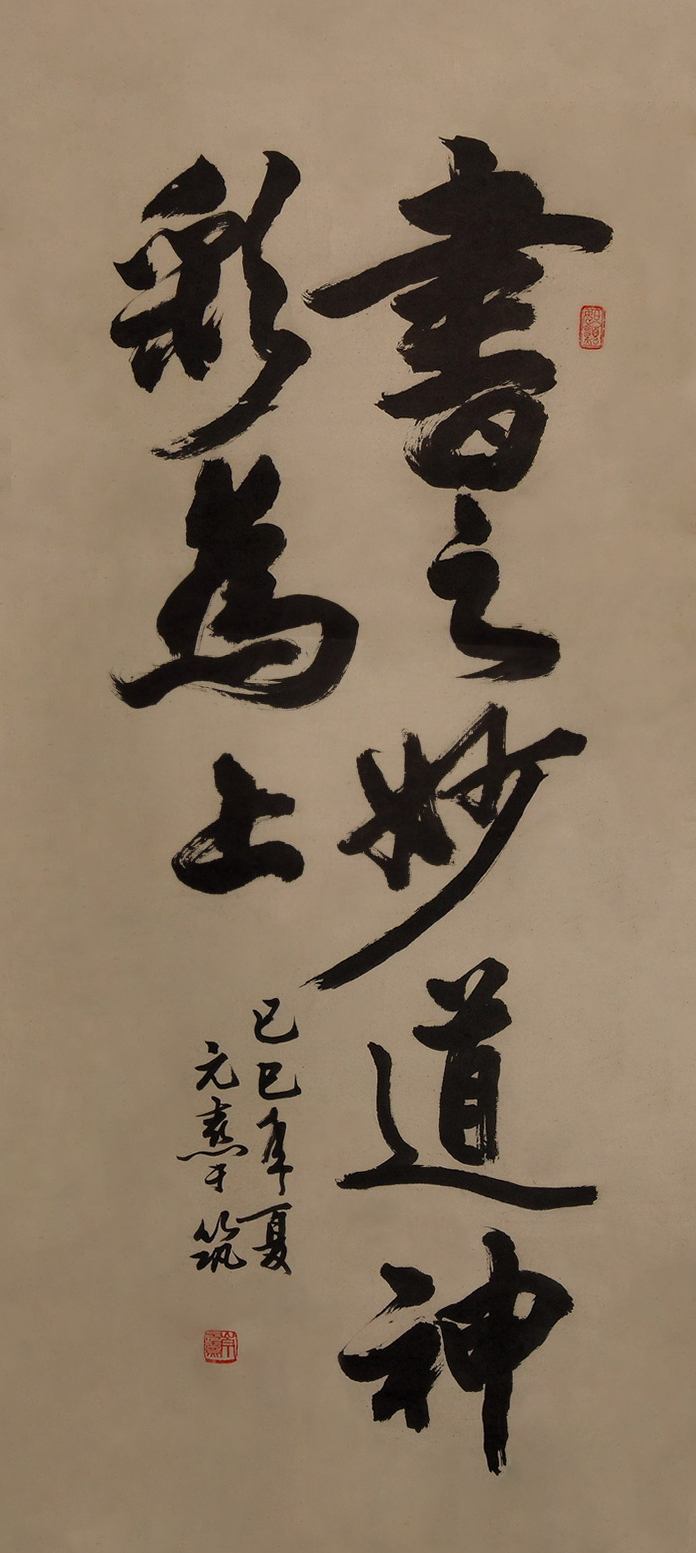 書之妙道神
彩為上
己巳年夏
元熹于筑